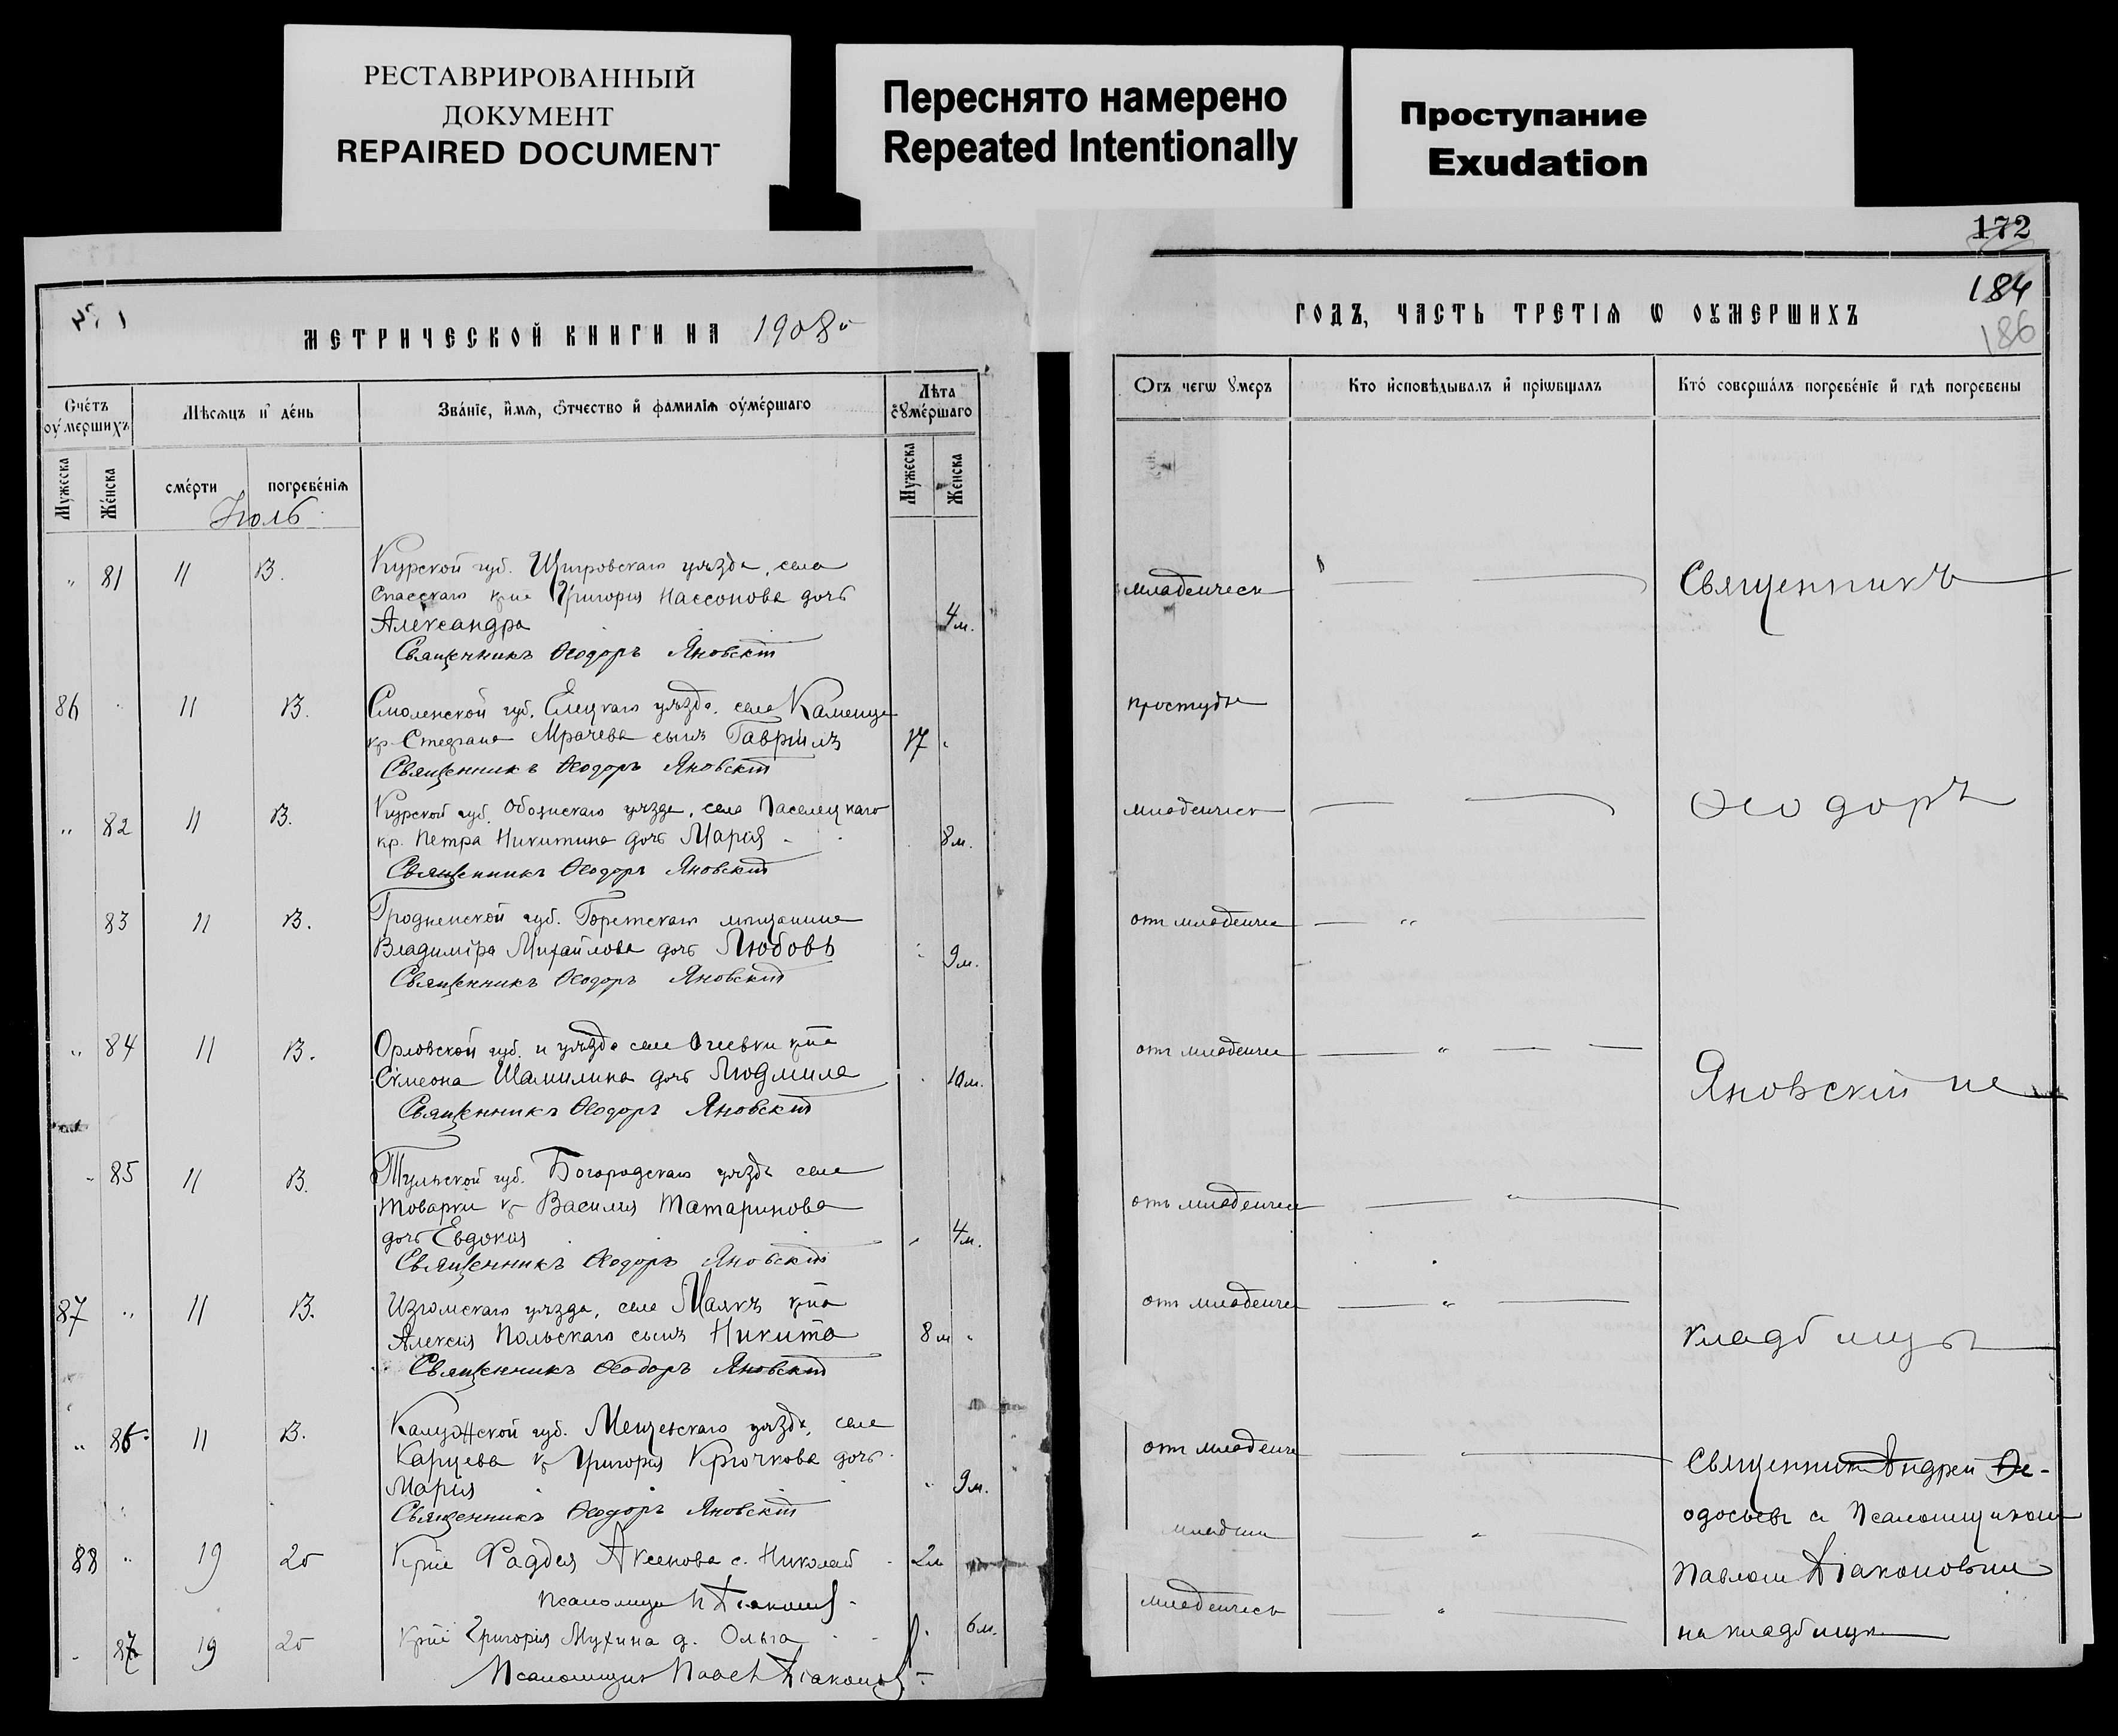 РЕСТАВРИРОВАННЫЙ
ДОКУМЕНТ
REPAIRED DOCUMENT
Переснято намерено
Repeated Intentionally
Проступание
Exudation
172
184
186
МЕТРИЧЕСКОЙ КНИГИ НА 1908й
ГОДЪ, ЧАСТЬ ТРЕТІЯ Ѡ ОУМЕРШИХЪ
Счетъ оумершихъ
Мѣсяцъ и день
Званіе, имя, отчество и фамилія оумершаго
Лѣта оумершаго
Мужеска
Женска
смерти
погребенія
Мужеска
Женска
Отъ чегѡ умеръ
Кто исповѣдывалъ и пріѡбщалъ
Кто совершалъ погребеніе и гдѣ погребены
Іюль
81 11 13. Курской губ. Щигровскаго уѣзда, села
Спасскаго кр͠не Григорія Нассонова дочь
Александра 4 м.
младенческ
Священникъ
Священникъ Ѳеодоръ Яновскій
86 11 13. Смоленской губ. Елецкаго уѣзда, села Каменца
кр. Стефана Мрачева сынъ Гавріилъ 17
простуды
Священникъ Ѳеодоръ Яновскій
82 11 13. Курской губ. Обоянскаго уѣзда, села Паселецкаго
кр. Петра Никитина дочь Марія 8 м.
младенческ
Ѳеодоръ
Священникъ Ѳеодоръ Яновскій
83 11 13. Гродненской губ. мѣщанина
Владиміра Михайлова дочь Любовь 9 м.
от младенче
Священникъ Ѳеодоръ Яновскій
84 11 13. Орловской губ. и уѣзда села кр͠не
Сѵмеона Шамилина дочь Людмила 10 м.
от младенче
Яновскій не
Священникъ Ѳеодоръ Яновскій
85 11 13. Тульской губ. Богородскаго уѣзда села
Товарки кр Василія Татаринова
дочь Евдокія 4 м.
отъ младенчес
Священникъ Ѳеодоръ Яновскій
87 11 13. Изюмскаго уѣзда, села Маякъ кр͠на
Алексія Польскаго сынъ Никита 8 м
от младенче
кладбищѣ
Священникъ Ѳеодоръ Яновскій
86. 11 13. Калужской губ. Мещевскаго уѣзда, села
Карцева кр Григорія Крючкова дочь
Марія 9 м.
от младенче
Священникъ Ѳеодоръ Яновскій
Священник Андрей Ѳе-
одосьевъ съ Псаломщикомъ
Павломъ Діаконовым
на кладбищѣ
88 19 20 Кр͠не Фаддея Аксенова с. Николай 2 м
младен
Псаломщ П Діаконовъ
87 19 20 Кр͠не Григорія Мухина д. Ольга 6 м.
младенческ
Псаломщик Павел Діаконовъ